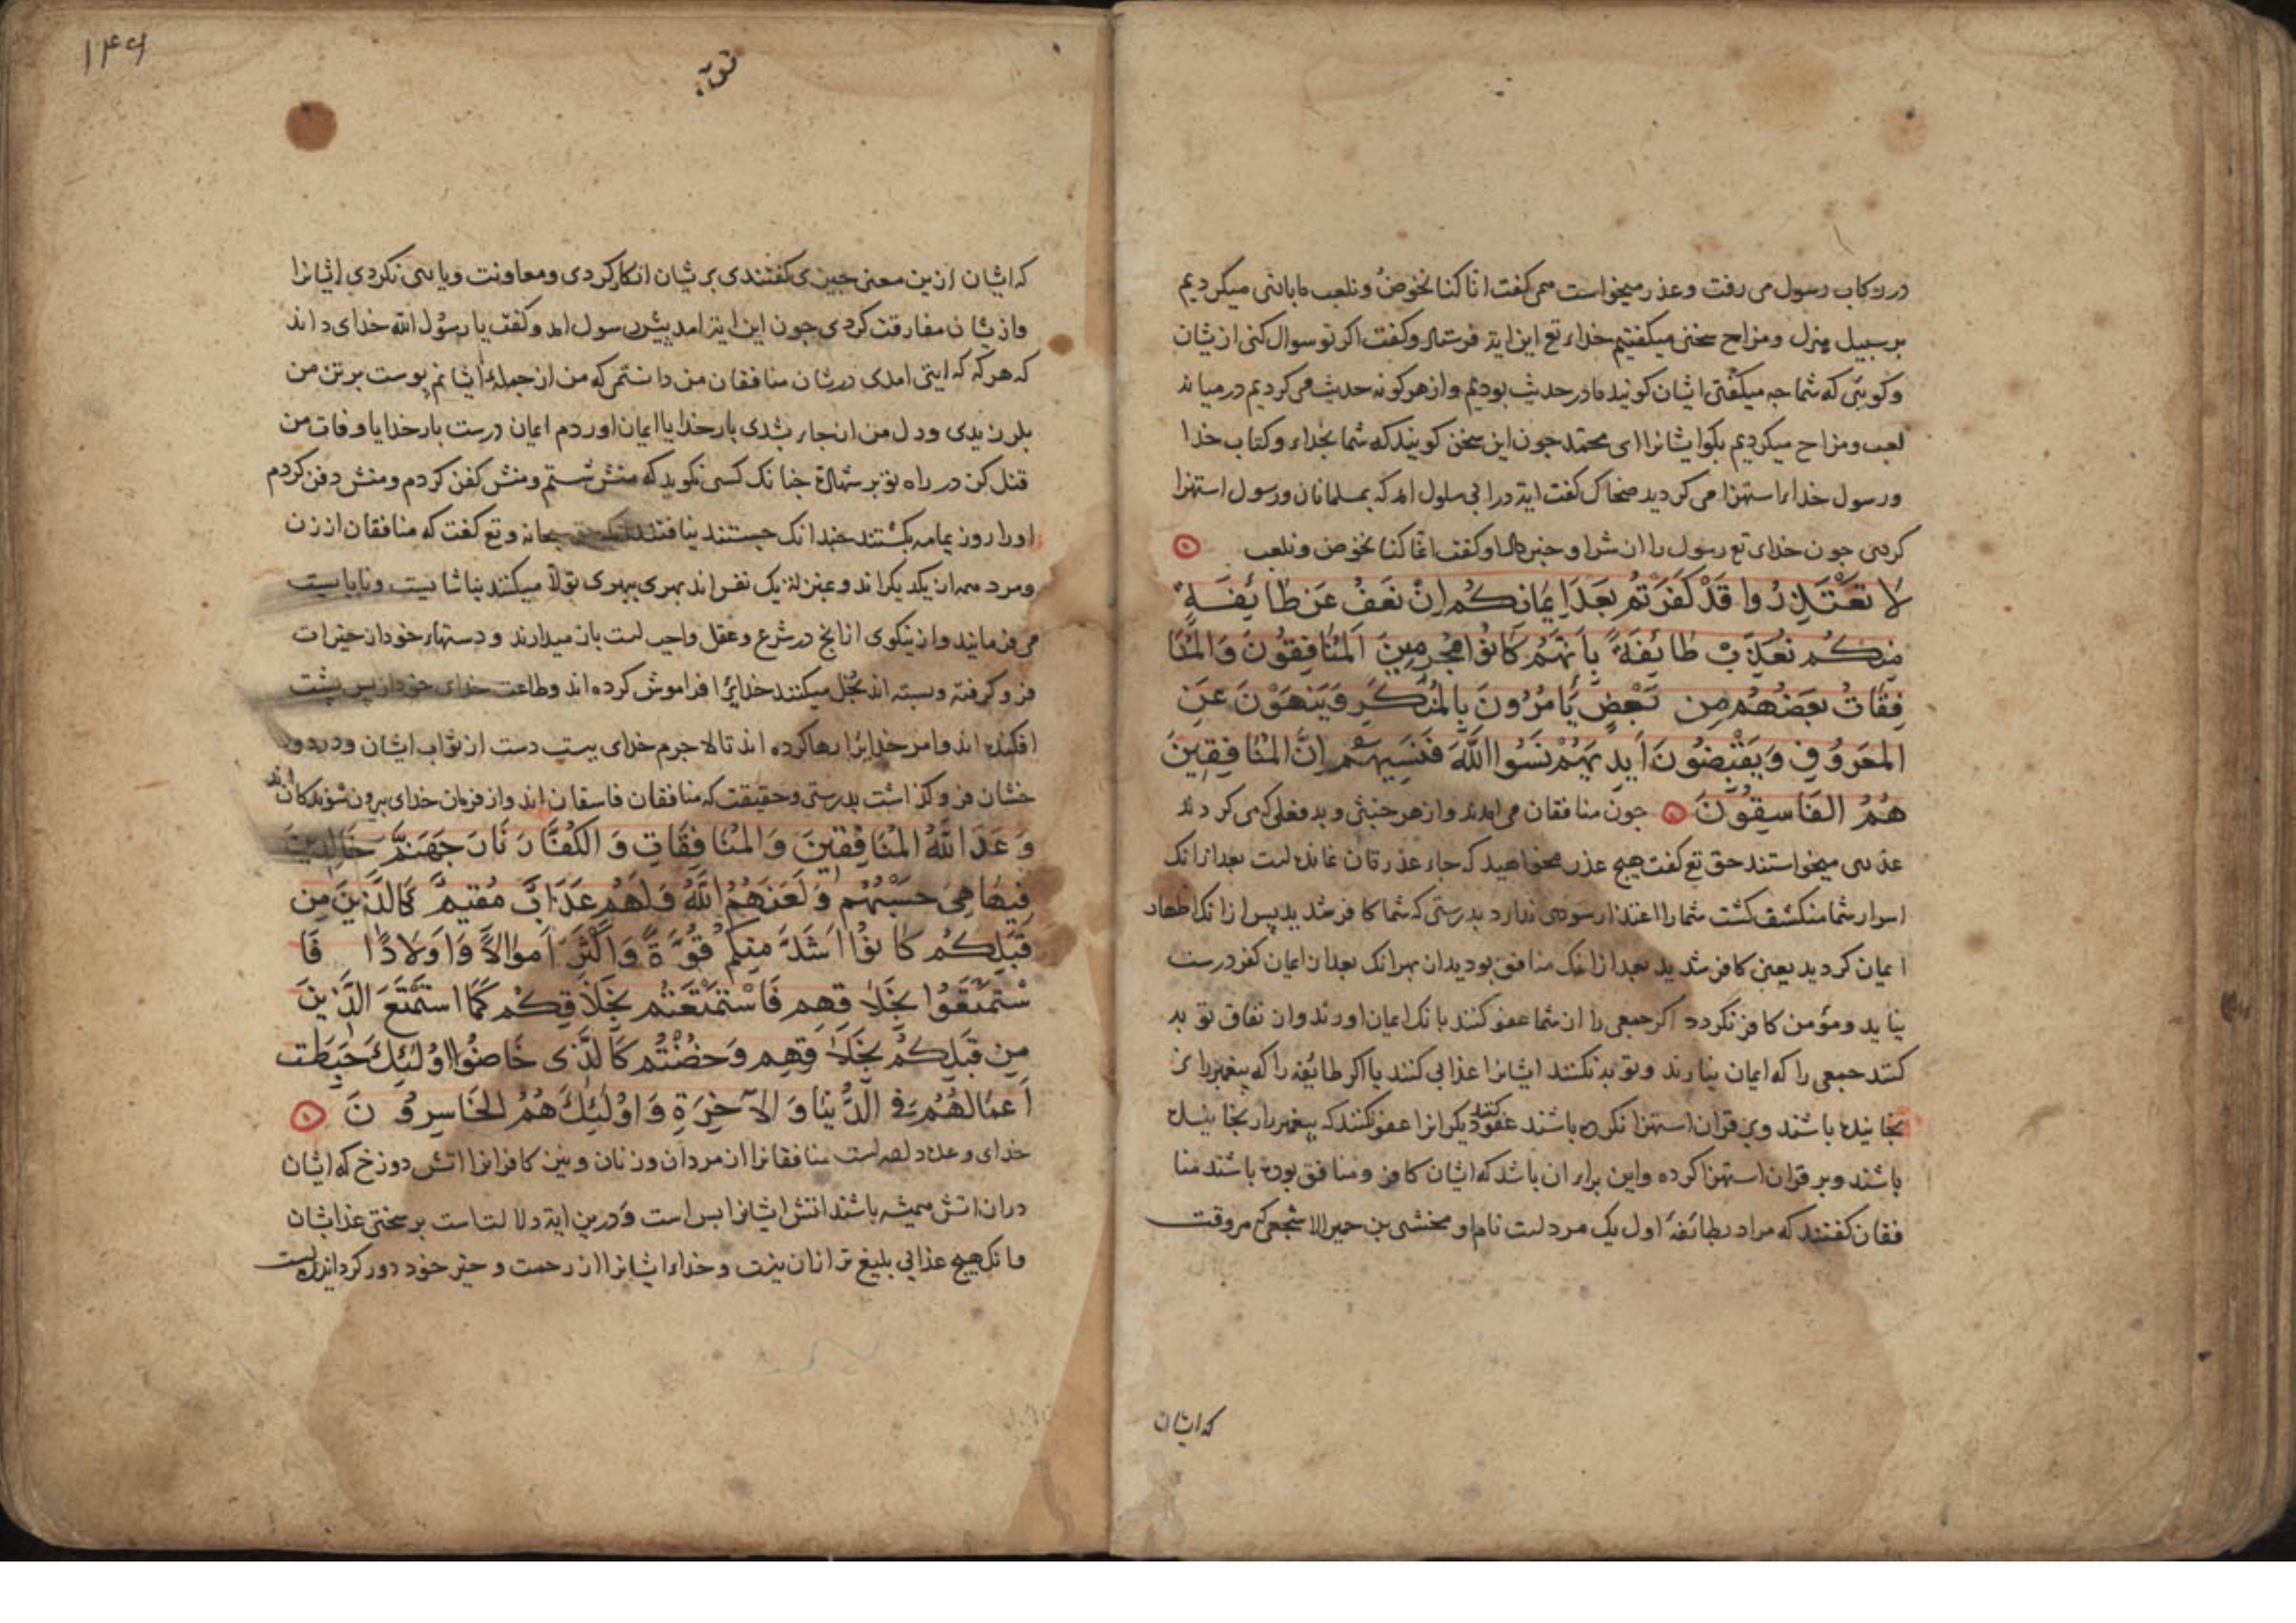 در رکاب رسول می رفت و عذر میخواست همی کفت انا کنا نخوض و نلعب ما بابی میکردیم
بر سبیل هزل و مزاح سخنی میکفتیم خدای تع این ایة فرستاد و کفت اکر تو سوال کنی ازیشان
و کویی که شما جه میکفتی ایشان کویند ما در حدیث بودیم و از هر کونه حدیث می کردیم در میانه
لعب و مزاح میکردیم بکو ایشانرا ای محمد جون این سخن کویند که شما بخدای و کتاب خدا
و رسول خدای استهزا می کردید ضحاک کفت ایة در ابی سلول امد که بمسلمانان و رسول استهزا
کردی جون خدای تع رسول را ان شرا و خبر داد او کفت انما کنا نخوض و نلعب
لا تعتذروا قد کفرتم بعد ایمانکم ان نعف عن طایفة
منکم نعذب طائفة بانهم کانوا مجرمین المنافقون والمنا
فقات بعضهم من بعض یامرون بالمنکر وینهون عن
المعروف ویقبضون ایدیهم نسوا الله فنسیهم ان المنافقین
هم الفاسقون جون منافقان می امدند و از هر خبثی و بد فعلی که می کردند
عذری میخواستند حق تع کفت هیج عذر مخواهید که جاء عذرتان نمانده است بعد ازانک
اسرار شما منکشف کشت شما را اعتذار سودی ندارد بدرستی که شما کافر شدید پس ازانک اظهار
ایمان کردید یعنی کافر شدید بعد ازانک منافق بودید ان بهرانک بعد ان ایمان کفر درست
نیاید و مؤمن کافر نکردد اکر جمعی را ان شما عفو کنند بانک ایمان اورند و ان نفاق توبه
کنند جمعی را که ایمان نیارند و توبه نکنند ایشانرا عذابی کنند یا اکر طائفه را که بیغمبر را نر
نجانیده باشند و بر قران استهزا نکرده باشند عفو کنند دیکرانرا عفو نکنند که بیغمبر را برنجانیده
باشند و بر قران استهزا کرده و این برای ان باشد که ایشان کافر و منافق بوده باشند منا
فقان کفتند که مراد بطائفه اول یک مرد است نام او مخشی بن حمیر الاشجعی که هر وقت
که ایشان
۱۴۹
توبة
که ایشان ازین معنی جیزی کفتندی بریشان انکار کردی و معاونت و یاری نکردی ایشانرا
و ازیشان مفارقت کردی جون این ایة امد پیش رسول امد و کفت یا رسول الله خدای داند
که هر که که ایتی امدی در شان منافقان من دانستمی که من از جمله ایشانم پوست بر تن من
بلرزیدی و دل من از جای بشدی بار خدایا ایمان اوردم ایمان درست بار خدایا وفات من
قتل کن در راه تو بر شهادة جنانک کسی نکوید که منش شستم و منش کفن کردم و منش دفن کردم
او را روز یمامه بکشتند جندانک جستند نیافتند سبحانه و تع کفت که منافقان از زن
و مرد همه از یکدیکراند و بمنزلة یک نفس اند بهری ببهری تولا میکنند بناشایست و نابایست
می فرمایند و از نیکوی انانج در شرع و عقل واجب است باز میدارند و دستهاء خود از خیرات
فرو کرفته و بسته اند بخل میکنند خدایرا فراموش کرده اند و طاعت خدای خود از پس پشت
افکنده اند و امر خدایرا رها کرده اند تا لا جرم خدای بیست دست از ثواب ایشان و در دو
خشان فرو کذاشت بدرستی و حقیقت که منافقان فاسقان اند و از فرمان خدای بیرون شوندکان اند
وعد الله المنافقین والمنافقات والکفار نار جهنم خالدین
فیها هی حسبهم ولعنهم الله ولهم عذاب مقیم کالذین من
قبلکم کانوا اشد منکم قوة واکثر اموالا واولادا فا
ستمتعوا بخلاقهم فاستمتعتم بخلاقکم کما استمتع الذین
من قبلکم بخلاقهم وخضتم کالذی خاضوا اولئک حبطت
اعمالهم فی الدنیا والآخرة واولئک هم الخاسرون
خدای وعده داده است منافقانرا از مردان و زنان و نیز کافرانرا اتش دوزخ که ایشان
در ان اتش همیشه باشند اتش ایشانرا بس است و درین ایة دلالتست بر سختی عذابشان
و انک هیج عذابی بلیغ تر ازان نیست و خدای ایشانرا از رحمت و خیر خود دور کردانیده است